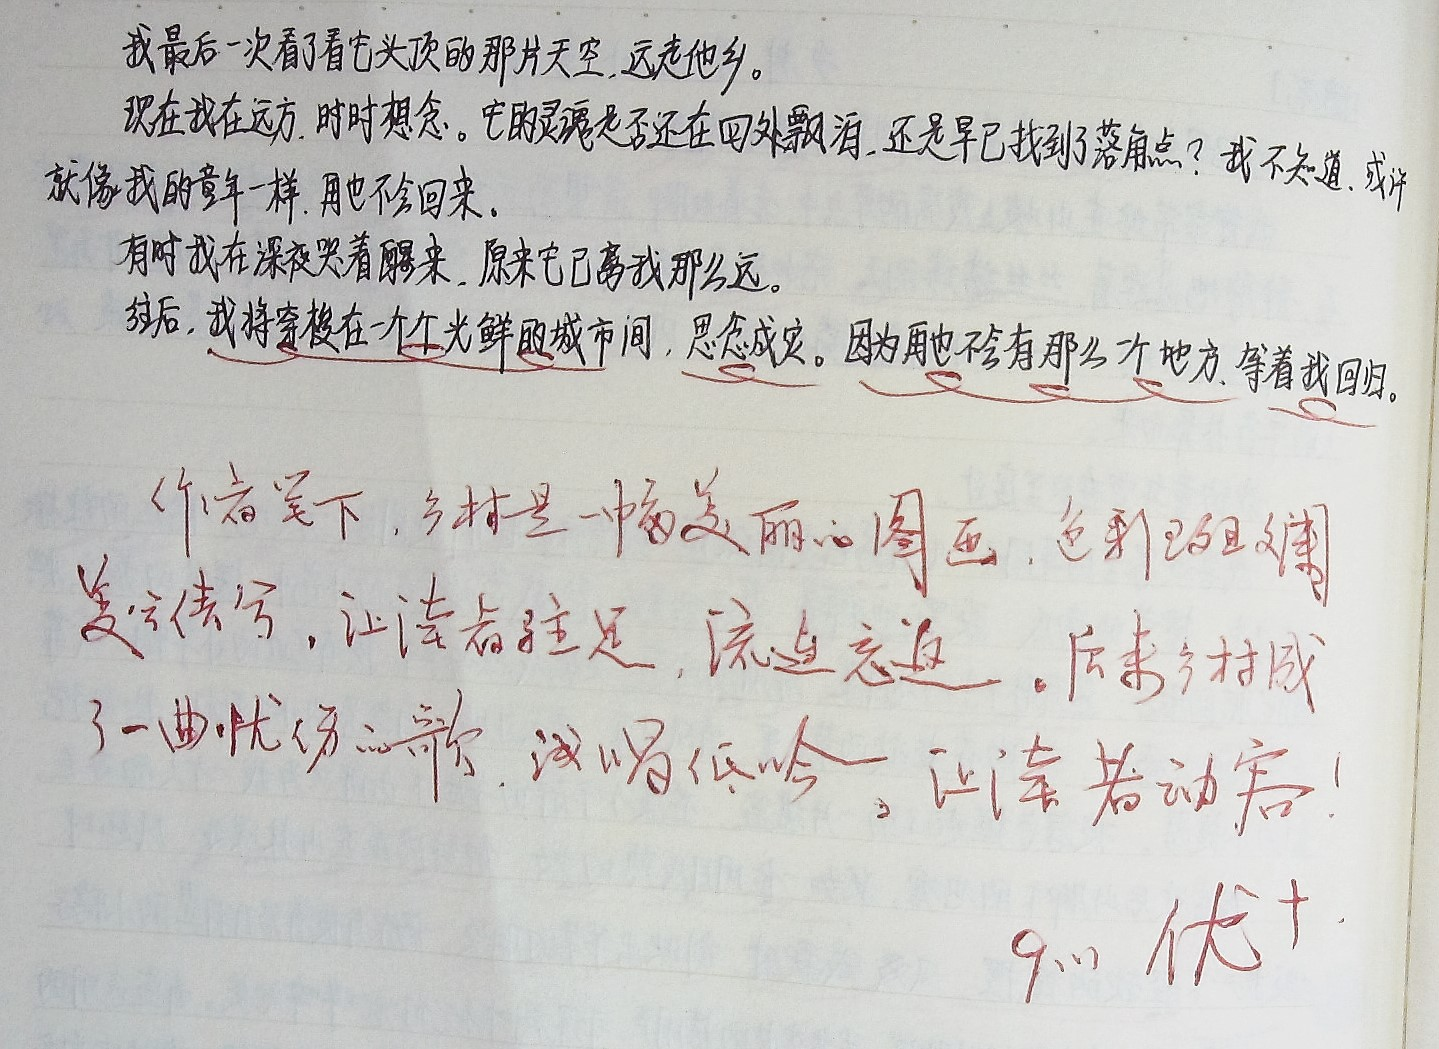 我最后一次看了看它头顶的那片天空,远走他乡。
现在我在远方,时时想念。它的灵魂是否还在四处飘泊,还是早已找到了落角点?我不知道,或许
就像我的童年一样,再也不会回来。
有时我在深夜哭着醒来,原来它已离我那么远。
往后,我将穿梭在一个个光鲜的城市间,思念成灾。因为再也不会有那么一个地方,等着我回归。
作者笔下,乡村是一幅美丽的图画,色彩斑斓
美妙传写,让读者驻足,流连忘返。后来乡村成
了一曲忧伤的歌,浅唱低吟,让读者动容!
优+